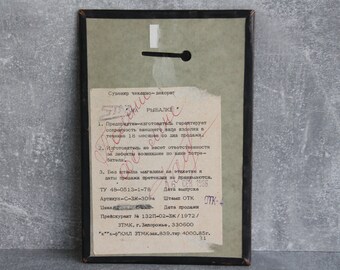 Сувенир чеканно-декорат
"НА РЫБАЛКЕ"
1. Предприятие-изготовитель гарантирует
сохранность внешнего вида изделия в
течение 18 месяцев со дня продажи.
2. Изготовитель не несет ответственности
за дефекты возникшие по вине потре-
бителя.
3. Без штампа магазина на этикетке и
даты продажи претензии не принимаются.
ТУ 48-0513-1-78 Дата выпуска
Артикул С-БЖ-309 Штамп ОТК
Цена Дата продажи
Прейскурант № 152П-02-БЖ /1972/
ЗТМК, г.Запорожье, 330600
ЗТМК зак.839, тир 4000, 83г.